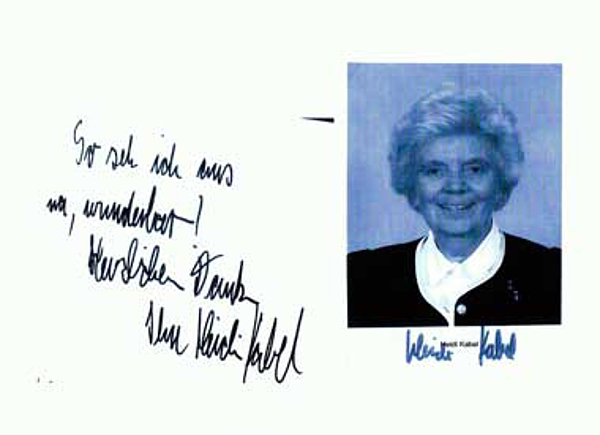 So seh ich aus
na, wunderbar!
Herzlichen Dank
Ihre Heidi Kabel
Heidi Kabel
Heidi Kabel